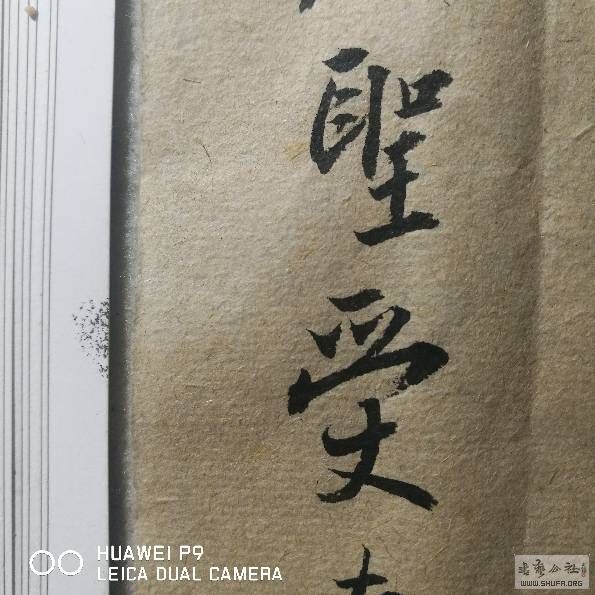 聖受
HUAWEI P9
LEICA DUAL CAMERA
WWW.SHUFA.ORG